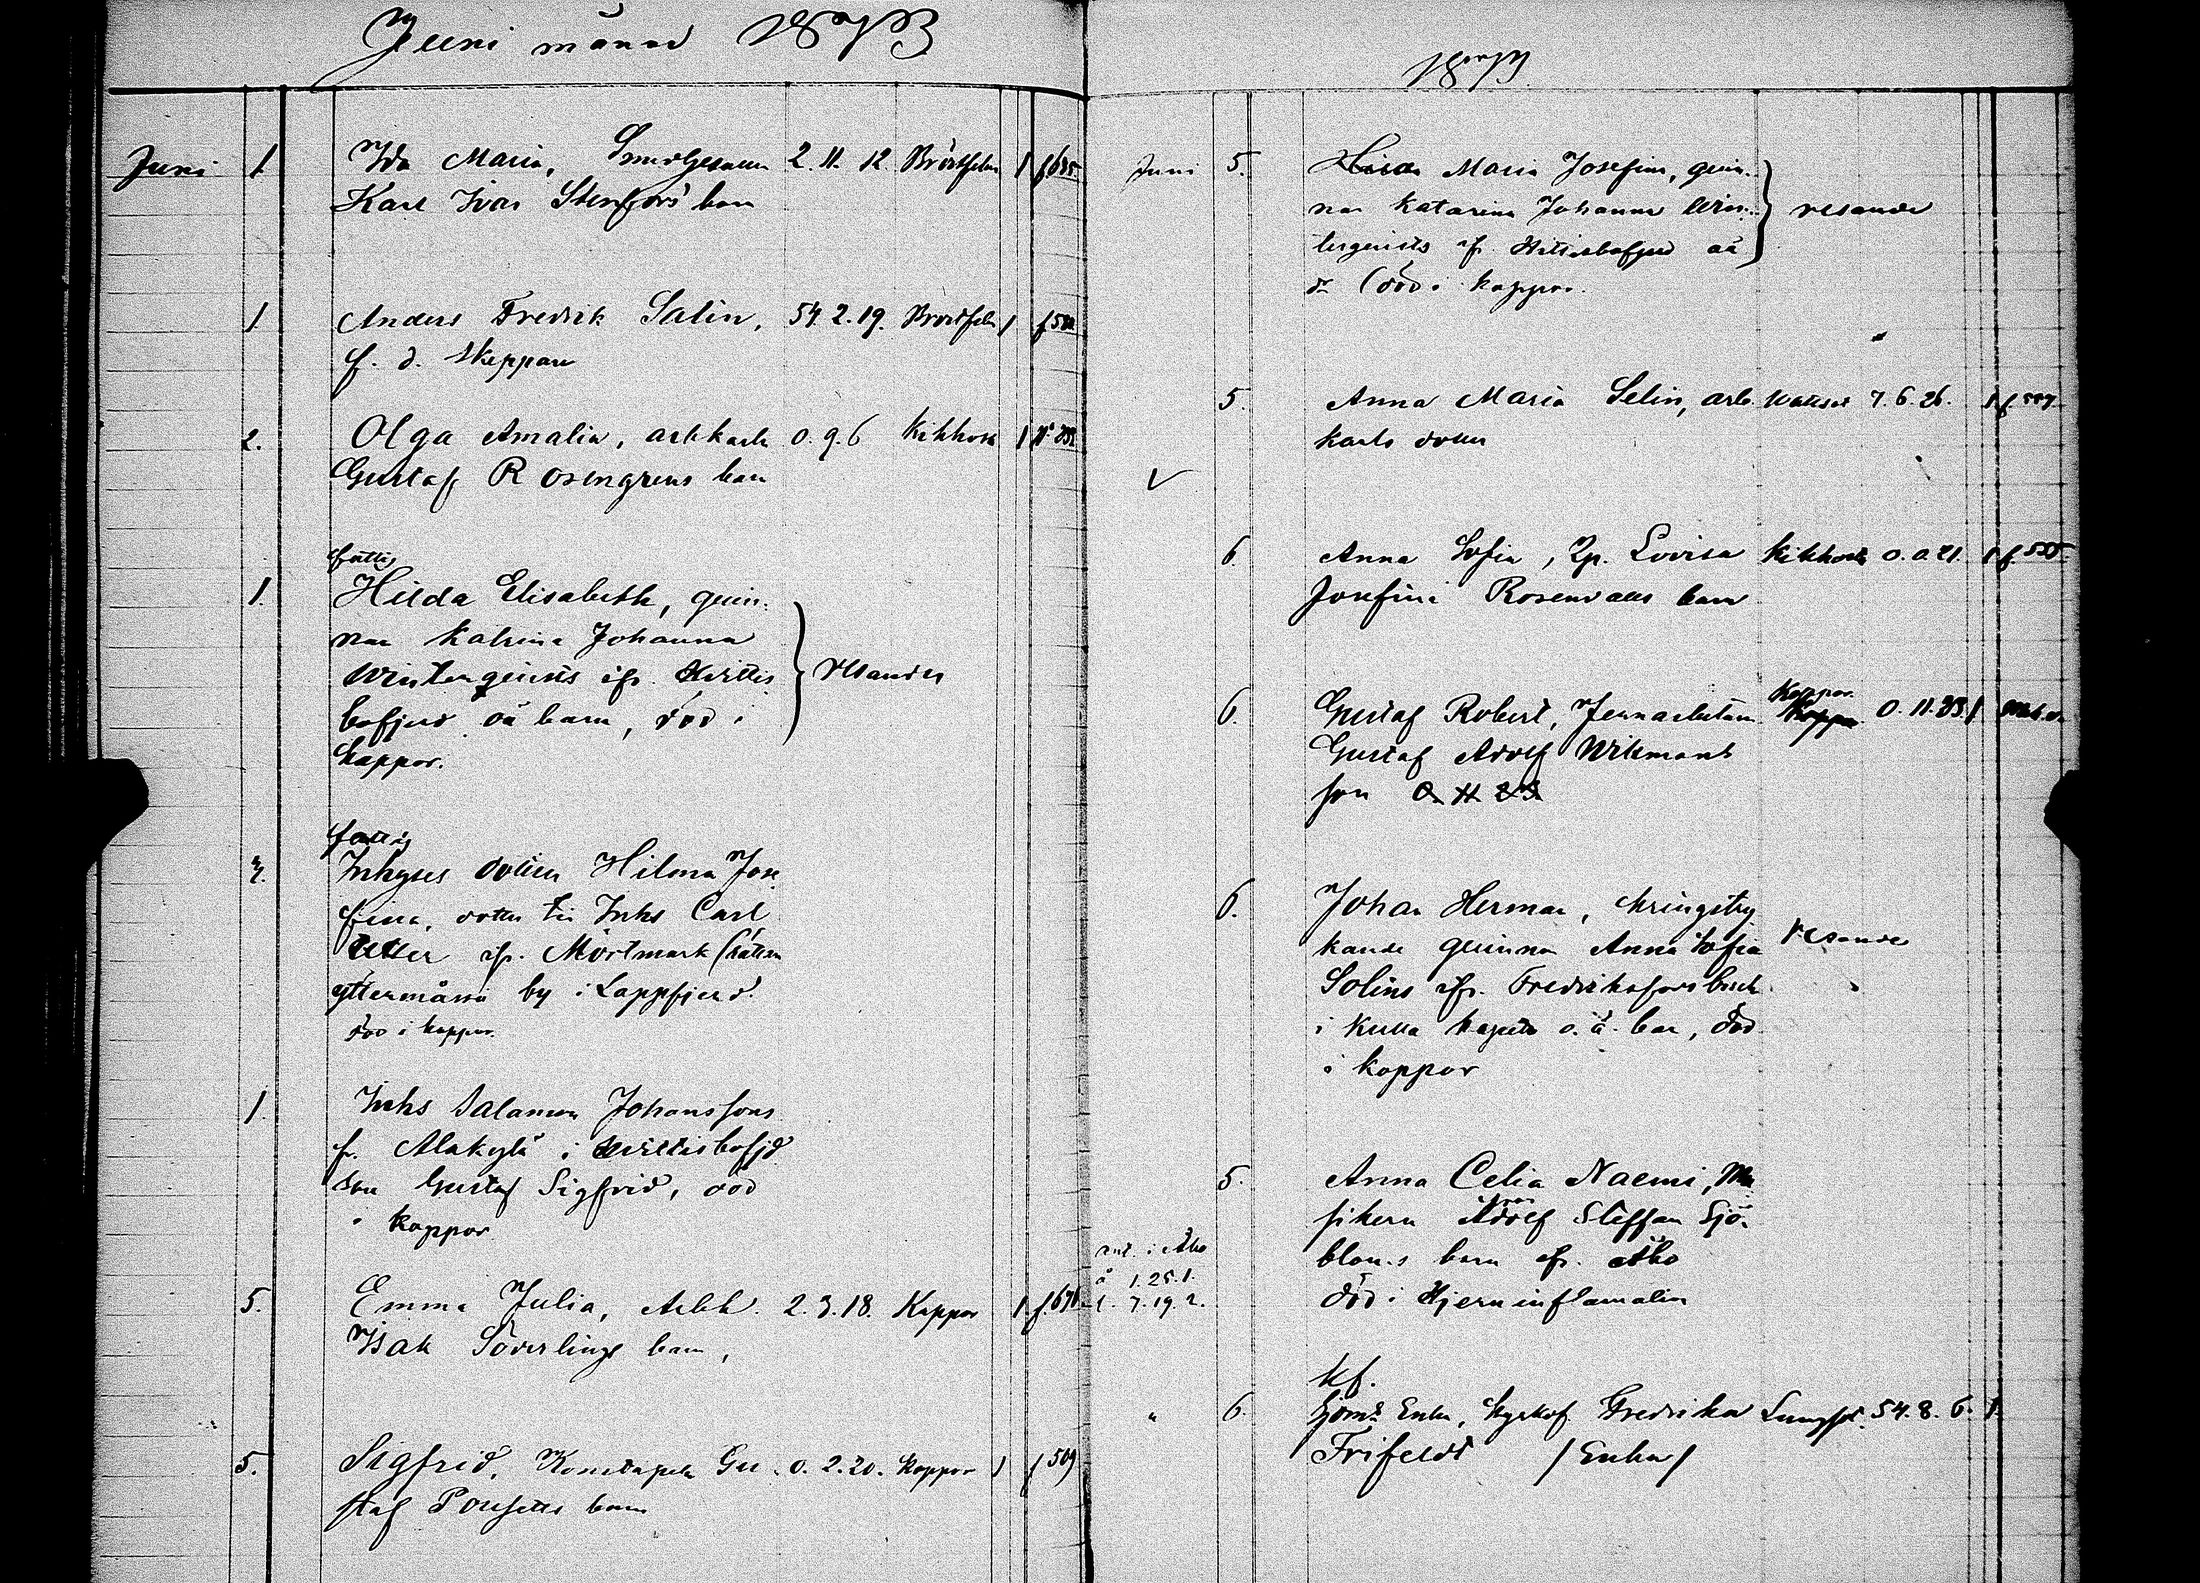 Juni månad 1873
Juni 1. Ida Maria, 2. 11. 12. Bröstfeber 1 f 635
Karl Ivar Stenfors barn
1. Anders Fredrik Salin, 54. 2. 19. Bröstfeber 1 f
f. d. Skeppare
2. Olga Amalia, arbkarls 0. 9. 6 Kikhosta 1
Gustaf Rosengrens barn
fattig
1. Hilda Elisabeth, qvin-
nan Katrina Johanna
Winterqvists ifr.
bofjerd oä barn, död i
koppor.
resandes
fattig
Inhyses dotter Hilma Jose
fina, dotter till Inhs Carl
ifr. Mörtmark
yttermåssa by i Lappfjerd.
död i koppor.
1. Inhs Salamon Johanssons
fr. Alakylä i
son Gustaf Sigfrid, död
i koppor
5. Emma Julia, Arbk. 2. 3. 18. Koppor 1. f.
Isak Söderlings barn,
5. Sigfrid, Konstapeln Gu- 0. 2. 20. Koppor 1 f 509
staf barn
1873
Juni 5. Maria Josefina, qvin-
nan Katarina Johanna Win-
terqvists ifr. oä
död i koppor.
resande
5. Anna Maria Selin, arb. Wattsot 7. 6. 26. 1 f
karls dotter
6. Anna Sofia, Lovisa Kikhosta 0. 0. 21. 1 f.
Josefina Rosendalls barn
6. Gustaf Robert, Jernarbetaren Koppor. Koppor 0. 11. 23. 1
Gustaf Adolf Wikmans
son 0. 11 23
6. Johan Herman, kringstry
kande qvinnan Anna Sofia
Solins ifr. Fredriksfors bruk
i Kulla kapell o. ä. barn, död
i koppor
resande
5. Anna Celia Naemi, Mu
sikern Adolf Steffan Sjö-
bloms barn ifr. Åbo
död i Hjerninflamation
ant. i Åbo
å 1. 25. 1.
t. 7. 19. 2.
kf.
" 6. Enka, Fredrika 54. 8. 6. 1.
Frifeldt /Enka/